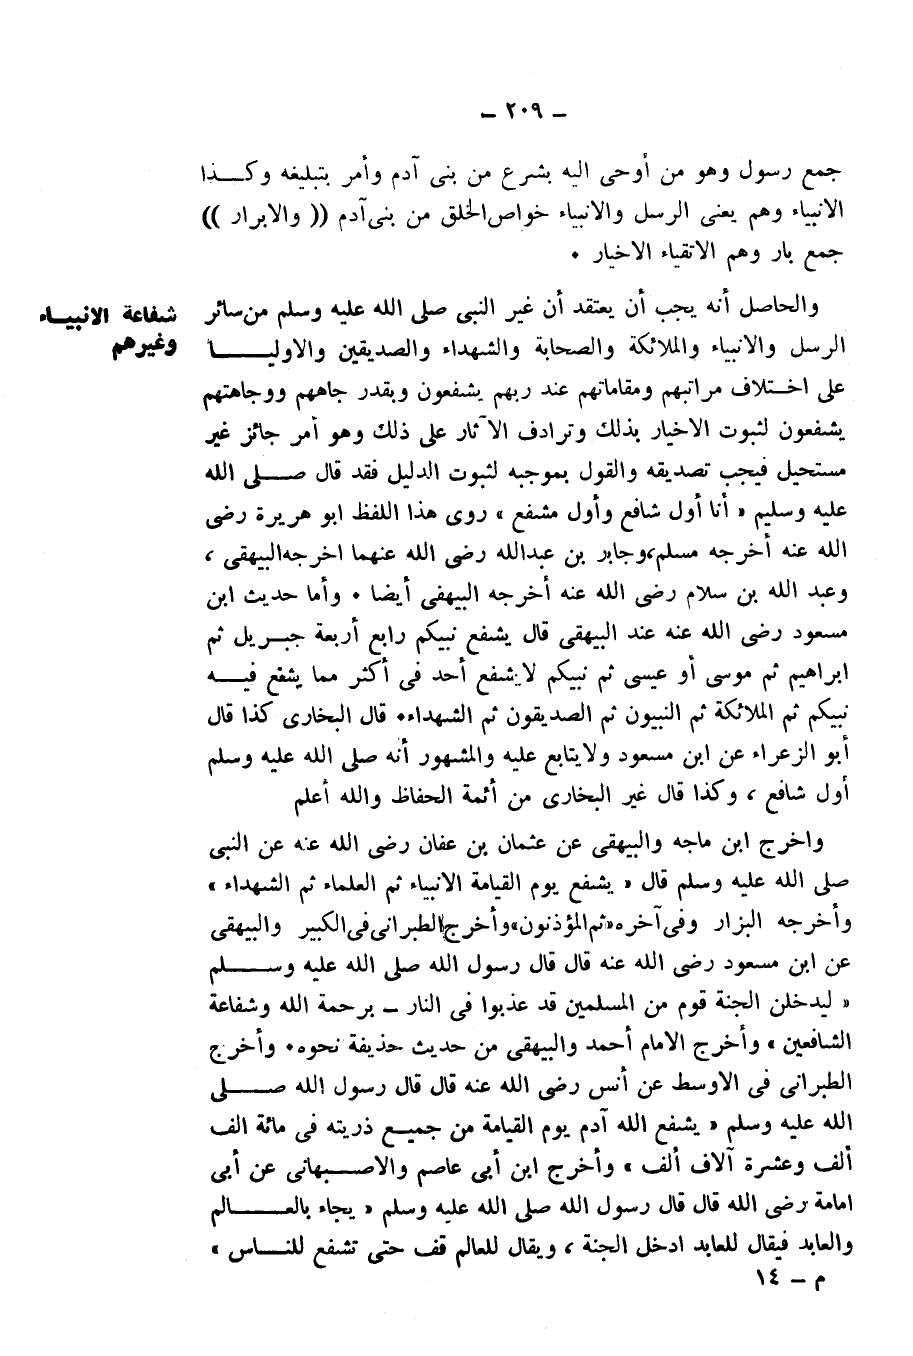 – ٢٠٩ –
جمع رسول وهو من أوحى اليه بشرع من بنى آدم وأمر بتبليغه وكـــذا
الانبياء وهم يعنى الرسل والانبياء خواص الخلق من بنى آدم (( والابرار ))
جمع بار وهم الاتقياء الاخيار ٠
شفاعة الانبيــاء
وغيرهم
والحاصل أنه يجب أن يعتقد أن غير النبى صلى الله عليه وسلم من سائر
الرسل والانبياء والملائكة والصحابة والشهداء والصديقين والاوليــــا
على اختـلاف مراتبهم ومقاماتهم عند ربهم يشفعون وبقدر جاههم ووجاهتهم
يشفعون لثبوت الاخبار بذلك وترادف الآثار على ذلك وهو أمر جائز غير
مستحيل فيجب تصديقه والقول بموجبه لثبوت الدليل فقد قال صـــلى الله
عليه وسليم « أنا أول شافع وأول مشفع » روى هذا اللفظ ابو هريرة رضى
الله عنه أخرجه مسلم،وجابر بن عبدالله رضى الله عنهما اخرجه البيهقى ،
وعبد الله بن سلام رضى الله عنه أخرجه البيهقى أيضا ٠ وأما حديث ابن
مسعود رضى الله عنه عند البيهقى قال يشفع نبيكم رابع أربعة جبـريل ثم
ابراهيم ثم موسى أو عيسى ثم نبيكم لا يشفع أحد فى أكثر مما يشفع فيـــه
نبيكم ثم الملائكة ثم النبيون ثم الصديقون ثم الشهداء٠ قال البخارى كذا قال
أبو الزعراء عن ابن مسعود ولايتابع عليه والمشهور أنه صلى الله عليه وسلم
أول شافع ، وكذا قال غير البخارى من أئمة الحفاظ والله أعلم
واخرج ابن ماجه والبيهقى عن عثمان بن عفان رضى الله عنه عن النبى
صلى الله عليه وسلم قال « يشفع يوم القيامة الانبياء ثم العلماء ثم الشهداء »
وأخرجه البزار وفى آخره«ثم المؤذنون»وأخرج الطبرانى فى الكبير والبيهقى
عن ابن مسعود رضى الله عنه قال قال رسول الله صلى الله عليه وســـلم
« ليدخلن الجنة قوم من المسلمين قد عذبوا فى النار – برحمة الله وشفاعة
الشافعين » وأخرج الامام أحمد والبيهقى من حديث حذيفة نحوه٠ وأخرج
الطبرانى فى الاوسط عن أنس رضى الله عنه قال قال رسول الله صـــلى
الله عليه وسلم « يشفع الله آدم يوم القيامة من جميـع ذريته فى مائة الف
ألف وعشرة آلاف ألف » وأخرج ابن أبى عاصم والاصـبهانى عن أبى
امامة رضى الله قال قال رسول الله صلى الله عليه وسلم « يجاء بالعـــالم
والعابد فيقال للعابد ادخل الجنة ، ويقال للعالم قف حتى تشفع للنــاس »
م – ١٤